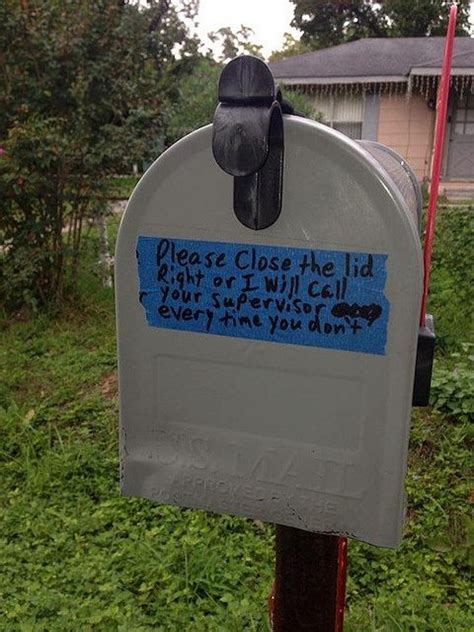 Please Close the lid
Right or I Will Call
your supervisor
every time you don't
U.S. MAIL
APPROVED BY THE